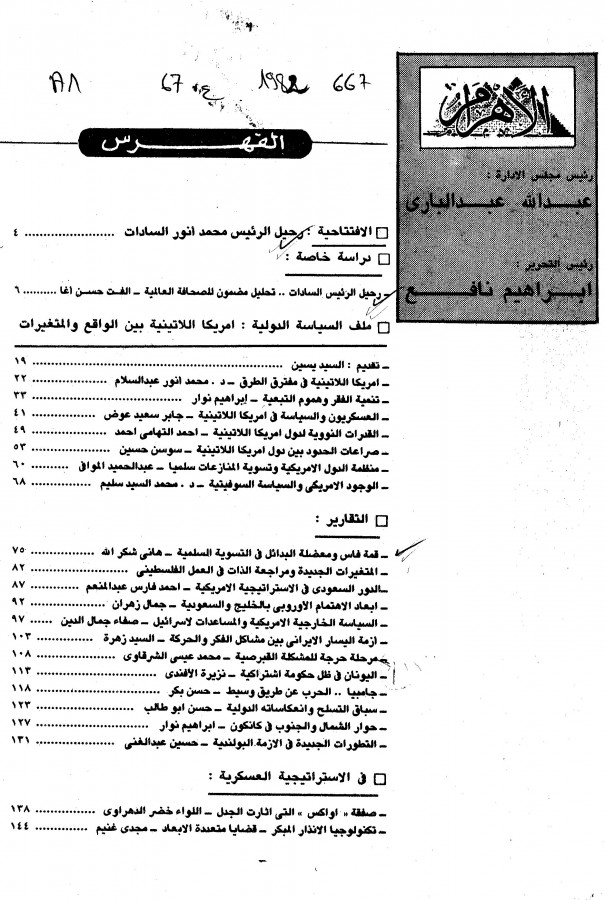 ٨١ 67 1982 667
الأهرام
رئيس مجلس الادارة :
عبدالله عبدالبارى
رئيس التحرير :
ابراهيم نافع
الفهرس
□ الافتتاحية : رحيل الرئيس محمد أنور السادات ........................ ٤
□ دراسة خاصة :
ـ رحيل الرئيس السادات .. تحليل مضمون للصحافة العالمية ـ الفت حسن أغا .......... ٦
□ ملف السياسة الدولية : امريكا اللاتينية بين الواقع والمتغيرات
ـ تقديم : السيد يسين ................................ ١٩
ـ امريكا اللاتينية فى مفترق الطرق ـ د . محمد أنور عبدالسلام .................... ٢٢
ـ تنمية الفقر وهموم التبعية ـ إبراهيم نوار .................... ٣٣
ـ العسكريون والسياسة فى امريكا اللاتينية ـ جابر سعيد عوض .................... ٤١
ـ القدرات النووية لدول امريكا اللاتينية ـ احمد التهامى احمد .................... ٤٩
ـ صراعات الحدود بين دول امريكا اللاتينية ـ سوسن حسين .................... ٥٣
ـ منظمة الدول الامريكية وتسوية المنازعات سلميا ـ عبدالحميد الموافى .......... ٦٠
ـ الوجود الامريكى والسياسة السوفيتية ـ د . محمد السيد سليم .................... ٦٨
□ التقارير :
ـ قمة فاس ومعضلة البدائل فى التسوية السلمية ـ هانى شكر الله ................ ٧٥
ـ المتغيرات الجديدة ومراجعة الذات فى العمل الفلسطينى .................... ٨٢
ـ الدور السعودى فى الاستراتيجية الامريكية ـ احمد فارس عبدالمنعم .......... ٨٧
ـ ابعاد الاهتمام الأوروبى بالخليج والسعودية ـ جمال زهران .................... ٩٢
ـ السياسة الخارجية الامريكية والمساعدات لاسرائيل ـ صفاء جمال الدين ...... ٩٧
ـ ازمة اليسار الايرانى بين مشاكل الفكر والحركة ـ السيد زهرة ................ ١٠٣
ـ مرحلة حرجة للمشكلة القبرصية ـ محمد عيسى الشرقاوى .................... ١٠٨
ـ اليونان فى ظل حكومة اشتراكية ـ نزيرة الأفندى .................... ١١٣
ـ جامبيا .. الحرب عن طريق وسيط ـ حسن بكر .................... ١١٨
ـ سباق التسلح وانعكاساته الدولية ـ حسن ابو طالب .................... ١٢٣
ـ حوار الشمال والجنوب فى كانكون ـ ابراهيم نوار .................... ١٢٧
ـ التطورات الجديدة فى الازمة البولندية ـ حسين عبدالغنى .................... ١٣١
□ فى الاستراتيجية العسكرية :
ـ صفقة « اواكس » التى اثارت الجدل ـ اللواء خضر الدهراوى ................ ١٣٨
ـ تكنولوجيا الانذار المبكر ـ قضايا متعددة الابعاد ـ مجدى غنيم .............. ١٤٤